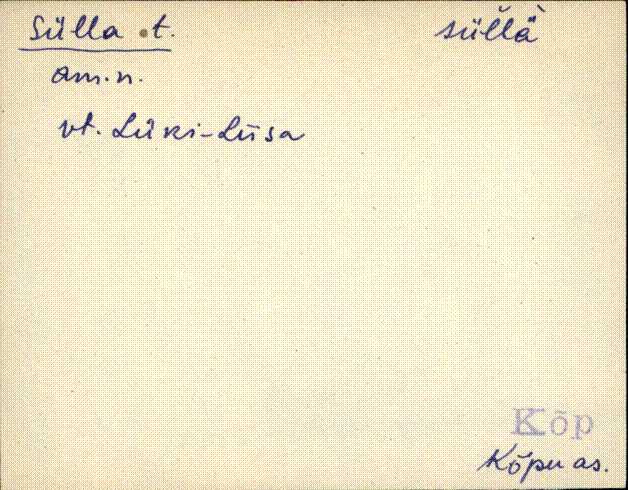 Sülla t. süllä̡
am.n.
vt. Lüki-Liisa
Kõp
Kõpu as.